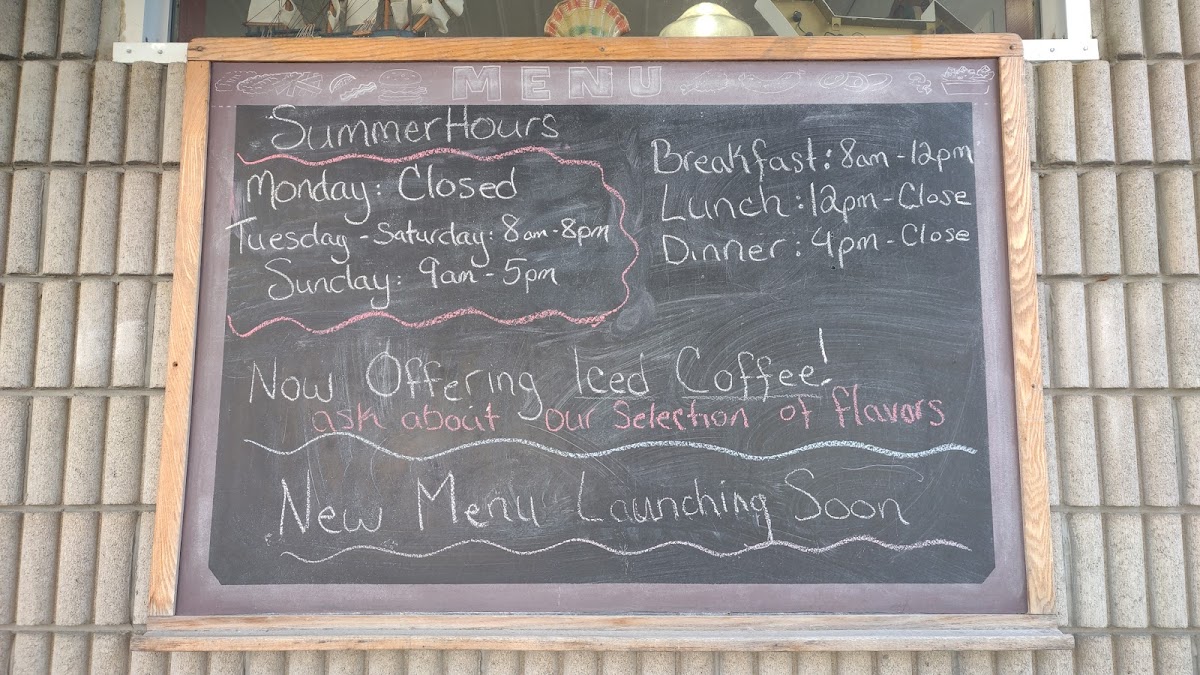 MENU
Summer Hours
Monday: Closed
Tuesday - Saturday: 8am - 8pm
Sunday: 9am - 5pm
Breakfast: 8am - 12pm
Lunch: 12pm - Close
Dinner: 4pm - Close
Now Offering Iced Coffee!
ask about our Selection of flavors
New Menu Launching Soon